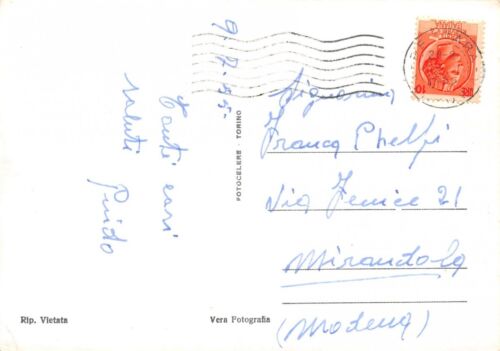 9.7.55
Tanti cari
saluti
Guido
FOTOCELERE TORINO
Signorina
Franca Phelfi
Via Fenice 21
Mirandola
(Modena)
Rip. Vietata
Vera Fotografia